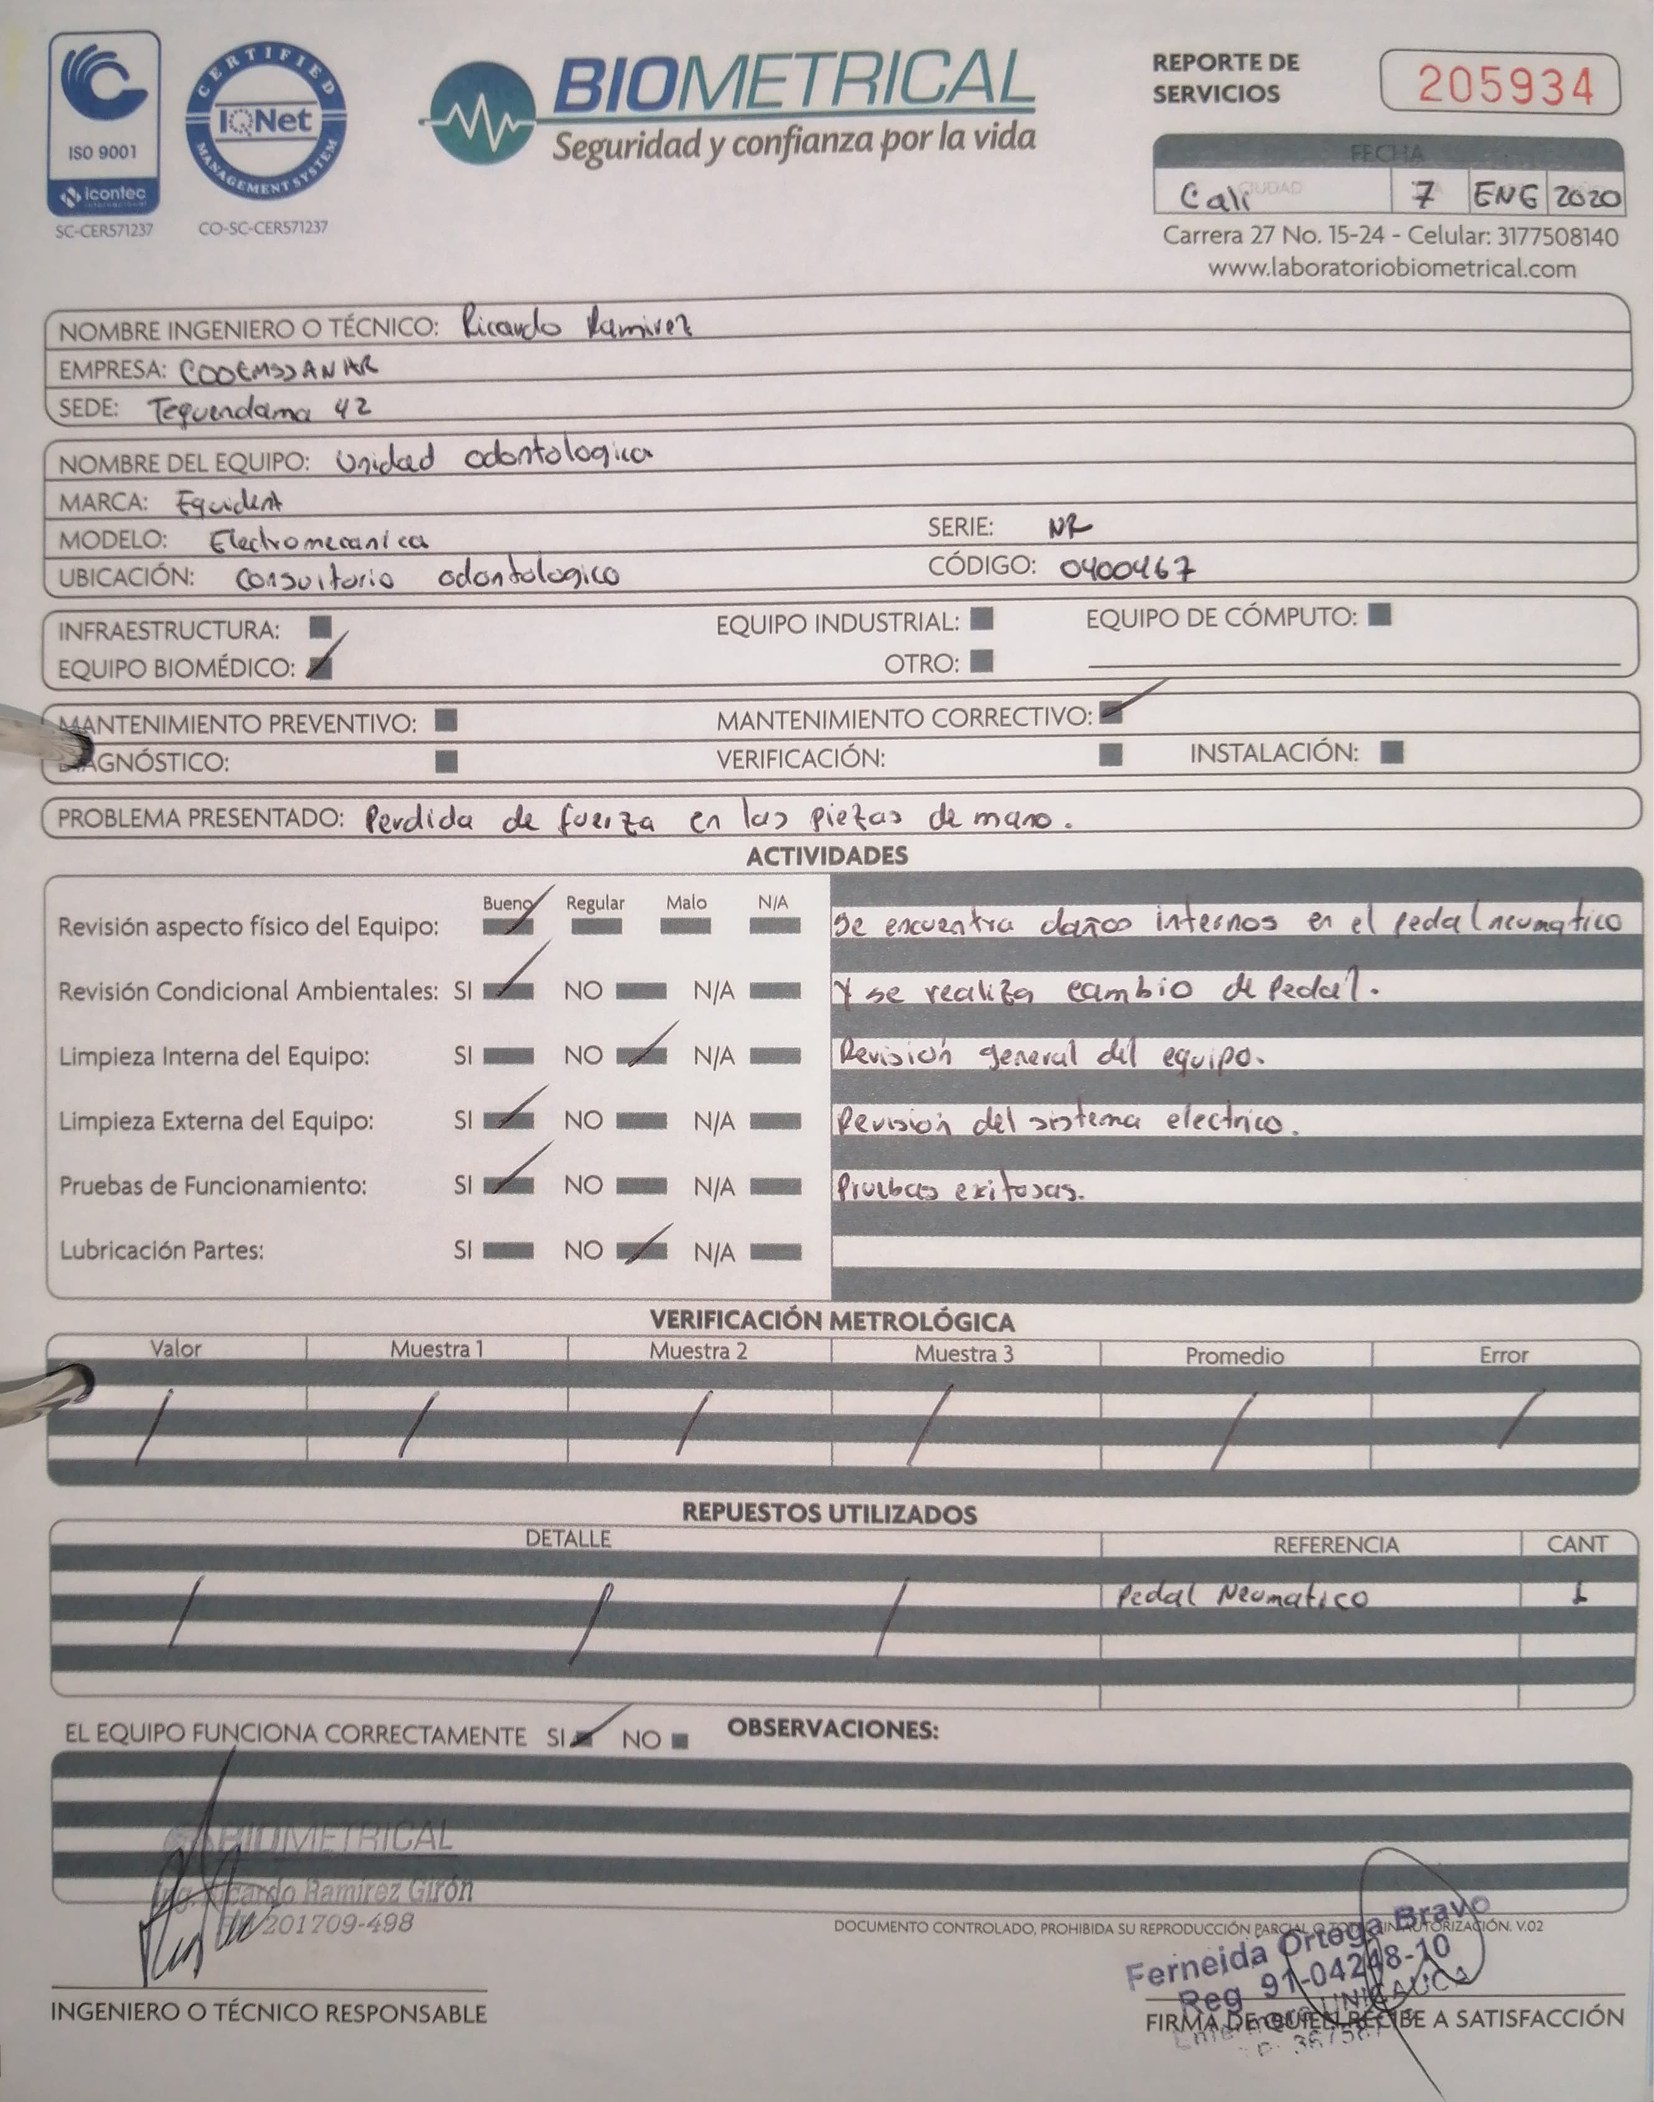 ISO 9001
icontec
SC-CER571237
CERTIFIED
IQNet
MANAGEMENT SYSTEM
CO-SC-CER571237
BIOMETRICAL
Seguridad y confianza por la vida
REPORTE DE
SERVICIOS
205934
FECHA
Cali CIUDAD 7 ENE 2020
Carrera 27 No. 15-24 - Celular: 3177508140
www.laboratoriobiometrical.com
NOMBRE INGENIERO O TÉCNICO: Ricardo Ramirez
EMPRESA: COOEMSSANAR
SEDE: Tequendama 42
NOMBRE DEL EQUIPO: Unidad odontologica
MARCA: Equident
MODELO: Electromecanica SERIE: NR
UBICACIÓN: Consultorio odontologico CÓDIGO: 0400467
INFRAESTRUCTURA: EQUIPO INDUSTRIAL: EQUIPO DE CÓMPUTO:
EQUIPO BIOMÉDICO: OTRO:
MANTENIMIENTO PREVENTIVO: MANTENIMIENTO CORRECTIVO:
DIAGNÓSTICO: VERIFICACIÓN: INSTALACIÓN:
PROBLEMA PRESENTADO: Perdida de fuerza en las piezas de mano.
ACTIVIDADES
Bueno Regular Malo N/A
Revisión aspecto físico del Equipo: Se encuentra daños internos en el pedal neumatico
Revisión Condicional Ambientales: SI NO N/A Y se realiza cambio de Pedal.
Limpieza Interna del Equipo: SI NO N/A Revisión general del equipo.
Limpieza Externa del Equipo: SI NO N/A Revisión del sistema electrico.
Pruebas de Funcionamiento: SI NO N/A Pruebas exitosas.
Lubricación Partes: SI NO N/A
VERIFICACIÓN METROLÓGICA
Valor Muestra 1 Muestra 2 Muestra 3 Promedio Error
REPUESTOS UTILIZADOS
DETALLE REFERENCIA CANT
Pedal Neumatico 1
EL EQUIPO FUNCIONA CORRECTAMENTE SI NO OBSERVACIONES:
BIOMETRICAL
Ing. Ricardo Ramirez Girón
201709-498
DOCUMENTO CONTROLADO, PROHIBIDA SU REPRODUCCIÓN PARCIAL O AUTORIZACIÓN. V.02
Ferneida Ortega Bravo
Reg 91-04248-10
UNICAUCA
INGENIERO O TÉCNICO RESPONSABLE
FIRMA DE QUIEN RECIBE A SATISFACCIÓN